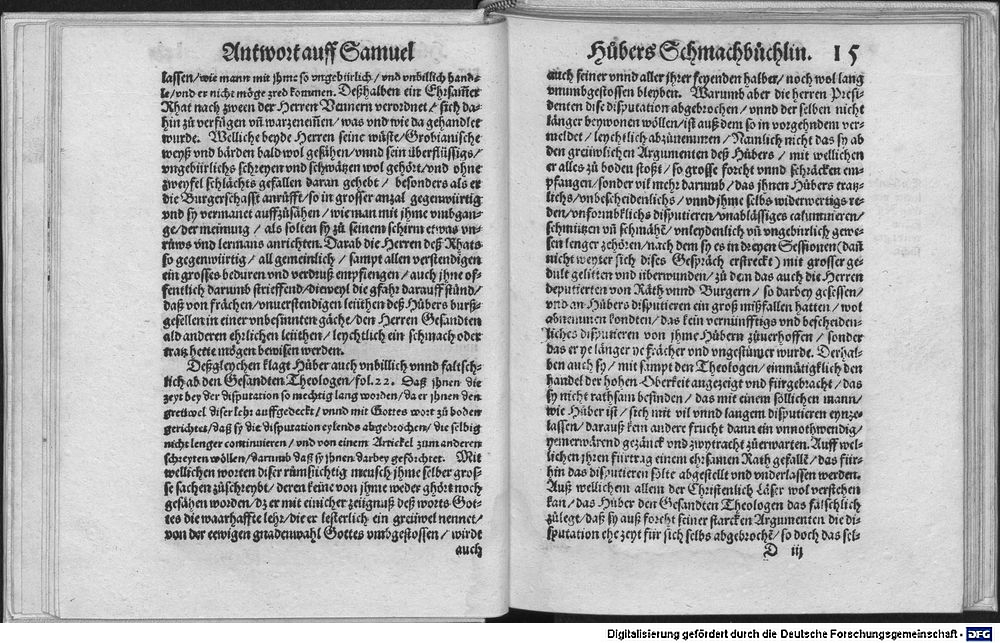 Antwort auff Samuel
lassen/wie mann mit jhme so vngebürlich/vnd vnbillich hand-
le/vnd er nicht möge zred kommen. Deßhalben ein Ehrsam̃er
Rhat nach zween der Herren Vennern verordnet/sich da-
hin zů verfügen vñ warzenem̃en/was vnd wie da gehandlet
wurde. Welliche beyde Herren seine wüste/Grobianische
weyß vnd bärden bald wol gesähen/vnnd sein überflüssigs/
vngebürlichs schreyen vnd schwätzen wol gehört/vnd ohne
zweyfel schlächts gefallen daran gehebt/ besonders als er
die Burgerschafft anrüfft/so in grosser anzal gegenwürtig
vnd sy vermanet auffzůsähen/wie man mit jhme vmbgan-
ge/der meinung/ als solten sy zů seinem schirm etwas vn-
růws vnd lermans anrichten. Darab die Herren deß Rhats
so gegenwürtig/ all gemeinlich / sampt allen verstendigen
ein grosses beduren vnd verdruß empfiengen/auch jhne of-
fentlich darumb strieffend/dieweyl die gfahr darauff stůnd/
daß von frächen/vnuerstendigen leüthen deß Hůbers burß-
gesellen in einer vnbesinnten gäche/den Herren Gesandten
ald anderen ehrlichen leüthen/ leychtlich ein schmach oder
tratz hette mögen bewisen werden.
Deßgleychen klagt Hůber auch vnbillich vnnd faltsch-
lich ab den Gesandten Theologen/fol.22. Daß jhnen die
zeyt bey der disputation so mechtig lang worden/da er jhnen den
greüwel diser lehr auffgedeckt/vnnd mit Gottes wort zů boden
gerichtet/daß sy die disputation eylends abgebrochen/die selbig
nicht lenger continuieren / vnd von einem Artickel zum anderen
schreyten wöllen/darumb daß sy jhnen darbey geförchtet. Mit
wellichen worten diser růmsüchtig mensch jhme selber gros-
se sachen zůschreybt/deren keine von jhme weder ghört noch
gesähen worden/dz er mit einicher zeügnuß deß worts Got-
tes die waarhaffte lehr/die er lesterlich ein greüwel nennet/
von der eewigen gnadenwahl Gottes vmbgestossen/ wirdt
auch
Hůbers Schmachbüchlin. 15
auch seiner vnnd aller jhrer feyenden halber/noch wol lang
vnumbgestossen bleyben. Warumb aber die herren Presi-
denten dise disputation abgebrochen/vnnd der selben nicht
länger beywonen wöllen/ist auß dem so in vorgehndem ver-
meldet/leychtlich abzůnemmen/Nämlich nicht das sy ab
den greüwlichen Argumenten deß Hůbers / mit wellichen
er alles zů boden stoßt/so grosse forcht vnnd schräcken em-
pfangen/sonder vil mehr darumb/das jhnen Hůbers tratz-
lichs/vnbescheidenlichs/vnnd jhme selbs widerwertigs re-
den/vnformbklichs disputieren/vnablässiges calumnieren/
schmützen vñ schmähẽ/vnleydenlich vñ vngebürlich gewe-
sen lenger zehören/nach dem sy es in dreyen Sessionen(dañ
nicht weyter sich dises Gespräch erstreckt) mit grosser ge-
dult gelitten vnd überwunden/zů dem das auch die Herren
deputierten von Räth vnnd Burgern/so darbey gesessen/
vnd an Hůbers disputieren ein groß mißfallen hatten/ wol
abnemmen kondten/das kein vernünfftigs vnd bescheiden-
liches disputieren von jhme Hůbern zůuerhoffen/ sonder
das er ye länger ye frächer vnd vngestümer wurde. Derhal-
ben auch sy/mit sampt den Theologen/einmütigklich den
handel der hohen Oberkeit angezeigt vnd fürgebracht/das
sy nicht rathsam befinden/das mit einem söllichen mann/
wie Hůber ist/sich mit vil vnnd langem disputieren eynze-
lassen/darauß kein andere frucht dann ein vnnothwendig/
yemerwärend gezänck vnd zwytracht zůerwarten. Auff wel-
lichen jhren fürtrag einem ehrsamen Rath gefallẽ/das für-
hin das disputieren sölte abgestellt vnd vnderlassen werden.
Auß wellichem allem der Christenlich Läser wol verstehen
kan/das Hůber den Gesandten Theologen das fälschlich
zůlegt/daß sy auß forcht seiner starcken Argumenten die di-
sputation ehe zeyt für sich selbs abgebrochẽ/so doch das sel-
D iij
Digitalisierung gefördert durch die Deutsche Forschungsgemeinschaft - DFG